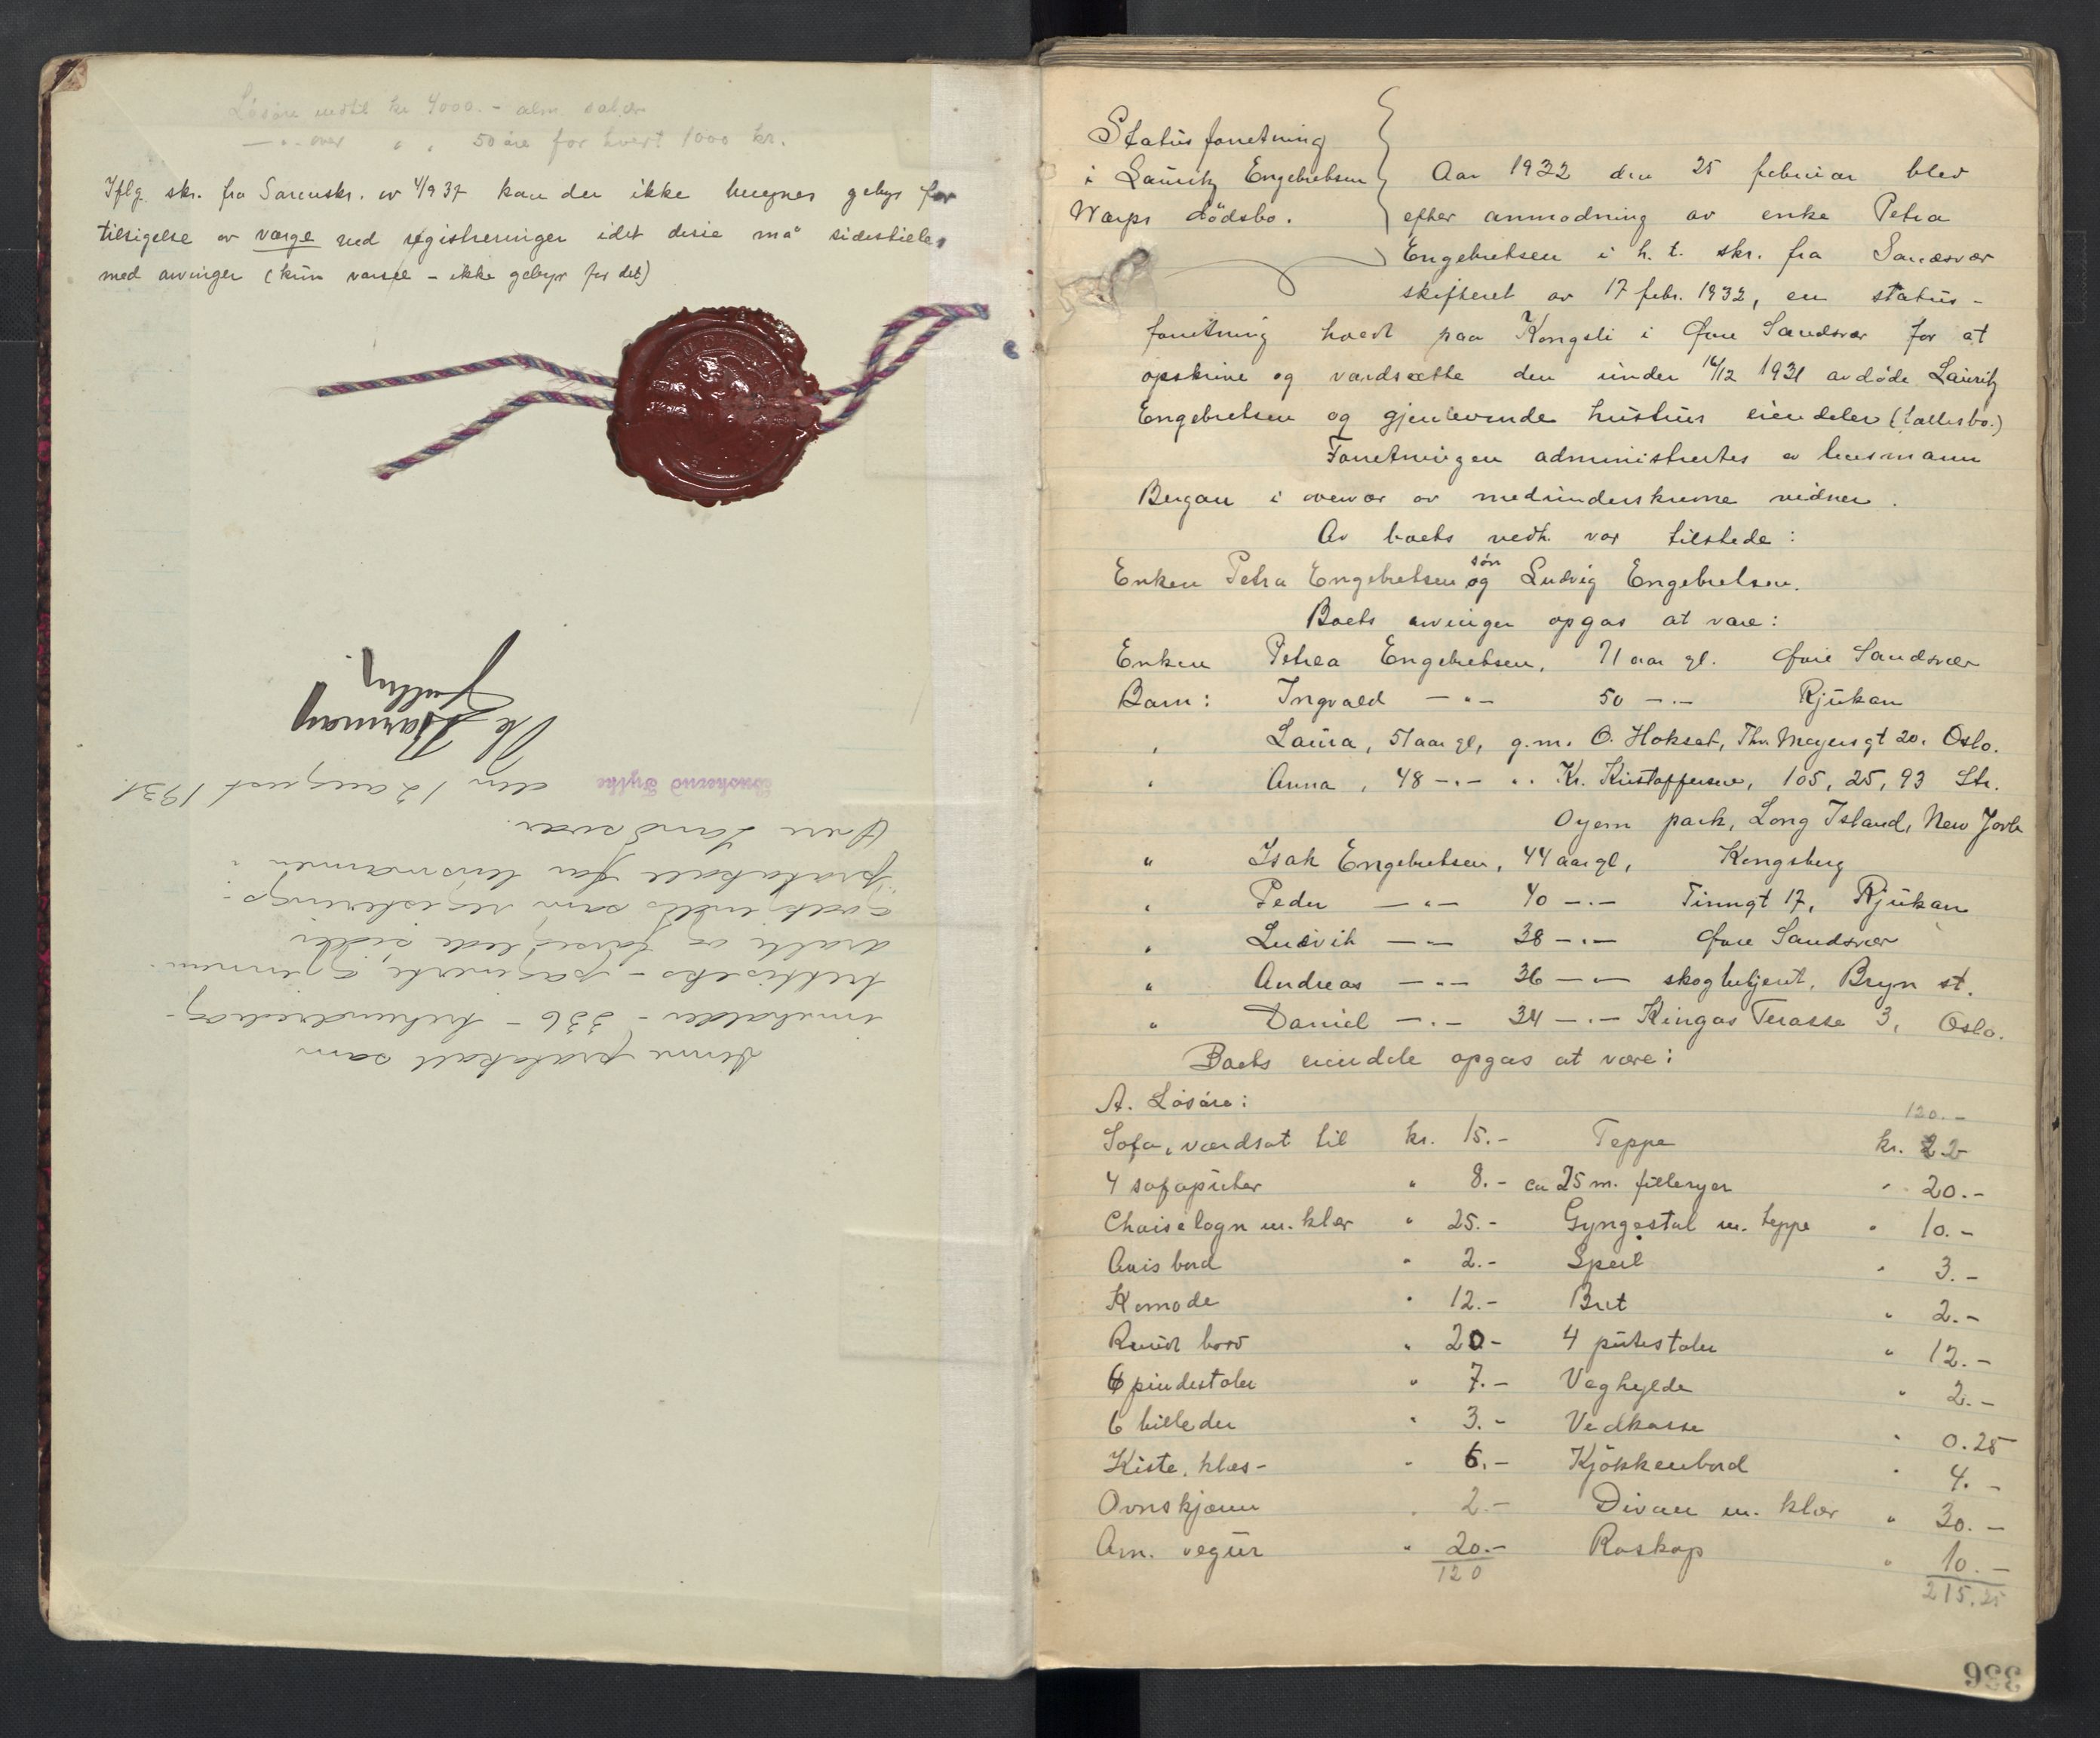 Løsøre indtil kr 4000.- alm. salær
—"— over " " 50 øre for hvert 1000 kr.
Iflg. skr. fra Sorenskr. av 4/9 37 kan der ikke beregnes gebyr for
tilsigelse av værge ved registreringer idet disse må sidestilles
med arvinger (kun varsle - ikke gebyr for det)
Denne protokoll som
inneholder - 336 - trehundreog-
trettiseks - paginerte, gjennem-
dratte og forseglede sider
godkjendes som registrerings-
protokoll for lensmannen i
Øvre Sandsvær.
Buskerud Fylke den 12 august 1931.
Statusforretning
i Lauritz Engebretsen
Warps dødsbo.
Aar 1932 den 25 februar blev
efter anmodning av enke Petra
Engebretsen i h. t. skr. fra Sandsvær
skifteret av 17 febr. 1932, en status-
forretning holdt paa Kongsli i Øvre Sandsvær for at
opskrive og værdsætte den under 16/12 1931 avdøde Lauritz
Engebretsen og gjenlevende hustrus eiendeler (fællesbo.)
Forretningen administrertes av lensmann
Bergan i overvær av medunderskrevne vidner.
Av boets vedk. var tilstede:
Enken Petra Engebretsen og søn Ludvig Engebretsen.
Boets arvinger opgas at være:
Enken Petrea Engebretsen, 71 aar gl. Øvre Sandsvær
Barn: Ingvald —"— 50 —"— Rjukan
" Laura, 51 aar gl, g.m. O. Hokset, Thv. Meyersgt 20, Oslo.
" Anna, 48 —"— " " Kr. Kristoffersen, 105, 25, 93 Str.
Oyem park, Long Island, New York
" Isak Engebretsen, 44 aar gl, Kongsberg
" Peder —"— 40 —"— Tinngt 17, Rjukan
" Ludvik —"— 38 —"— Øvre Sandsvær
" Andreas —"— 36 —"— skogbetjent, Bryn st.
" Daniel —"— 34 —"— Kingos Terasse 3, Oslo.
Boets eiendele opgas at være:
A. Løsøre:
120.-
Sofa, værdsat til kr. 15.- Teppe kr. 2.-
4 sofaputer " 8.- ca 25 m. filleryer " 20.-
Chaiselogn m. klær " 25.- Gyngestol m. teppe " 10.-
Avisbord " 2.- Speil " 3.-
Komode " 12.- Bret " 2.-
Rundt bord " 20- 4 putestoler " 12.-
6 pindestoler " 7.- Veghylde " 2.-
6 billeder " 3.- Vedkasse " 0.25
Kiste, klæs- " 6.- Kjøkkenbord " 4.-
Ovnskjærm " 2.- Divan m. klær " 30.-
Am. vegur " 20.- Roskop " 10.-
120
215.25
336